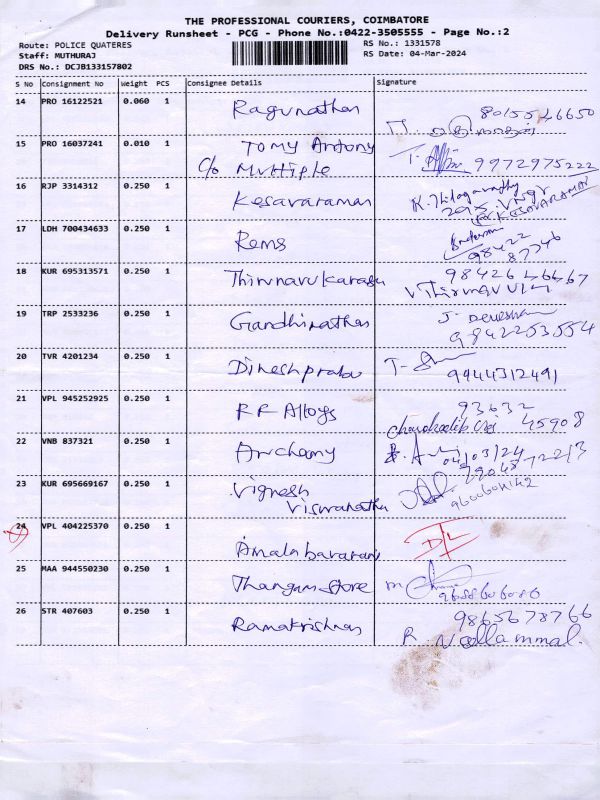 THE PROFESSIONAL COURIERS, COIMBATORE
Delivery Runsheet - PCG - Phone No.:0422-3505555 - Page No.:2
Route: POLICE QUATERES
Staff: MUTHURAJ
DRS No.: DCJB133157802
RS No.: 1331578
RS Date: 04-Mar-2024
S No Consignment No Weight PCS Consignee Details Signature
14 PRO 16122521 0.060 1 Ragunathan
15 PRO 16037241 0.010 1 Tomy Antony 9972975222
c/o Multiple
16 RJP 3314312 0.250 1 Kesavaraman K. Thilagavathy
for KESAVARAMAN
17 LDH 700434633 0.250 1 Rems 98422
87346
18 KUR 695313571 0.250 1 Thirunavukarasu
19 TRP 2533236 0.250 1 Gandhinathan 9842253554
20 TVR 4201234 0.250 1 Dineshprabu 9944312491
21 VPL 945252925 0.250 1 RF Alloys 93632
45908
22 VNB 837321 0.250 1 Archamy 04/03/24
23 KUR 695669167 0.250 1 Vignesh
Viswanathan
24 VPL 404225370 0.250 1 Amalabavarani DL
25 MAA 944550230 0.250 1 Thangam Store
26 STR 407603 0.250 1 Ramakrishnan 9865678766
R. Vellammal.